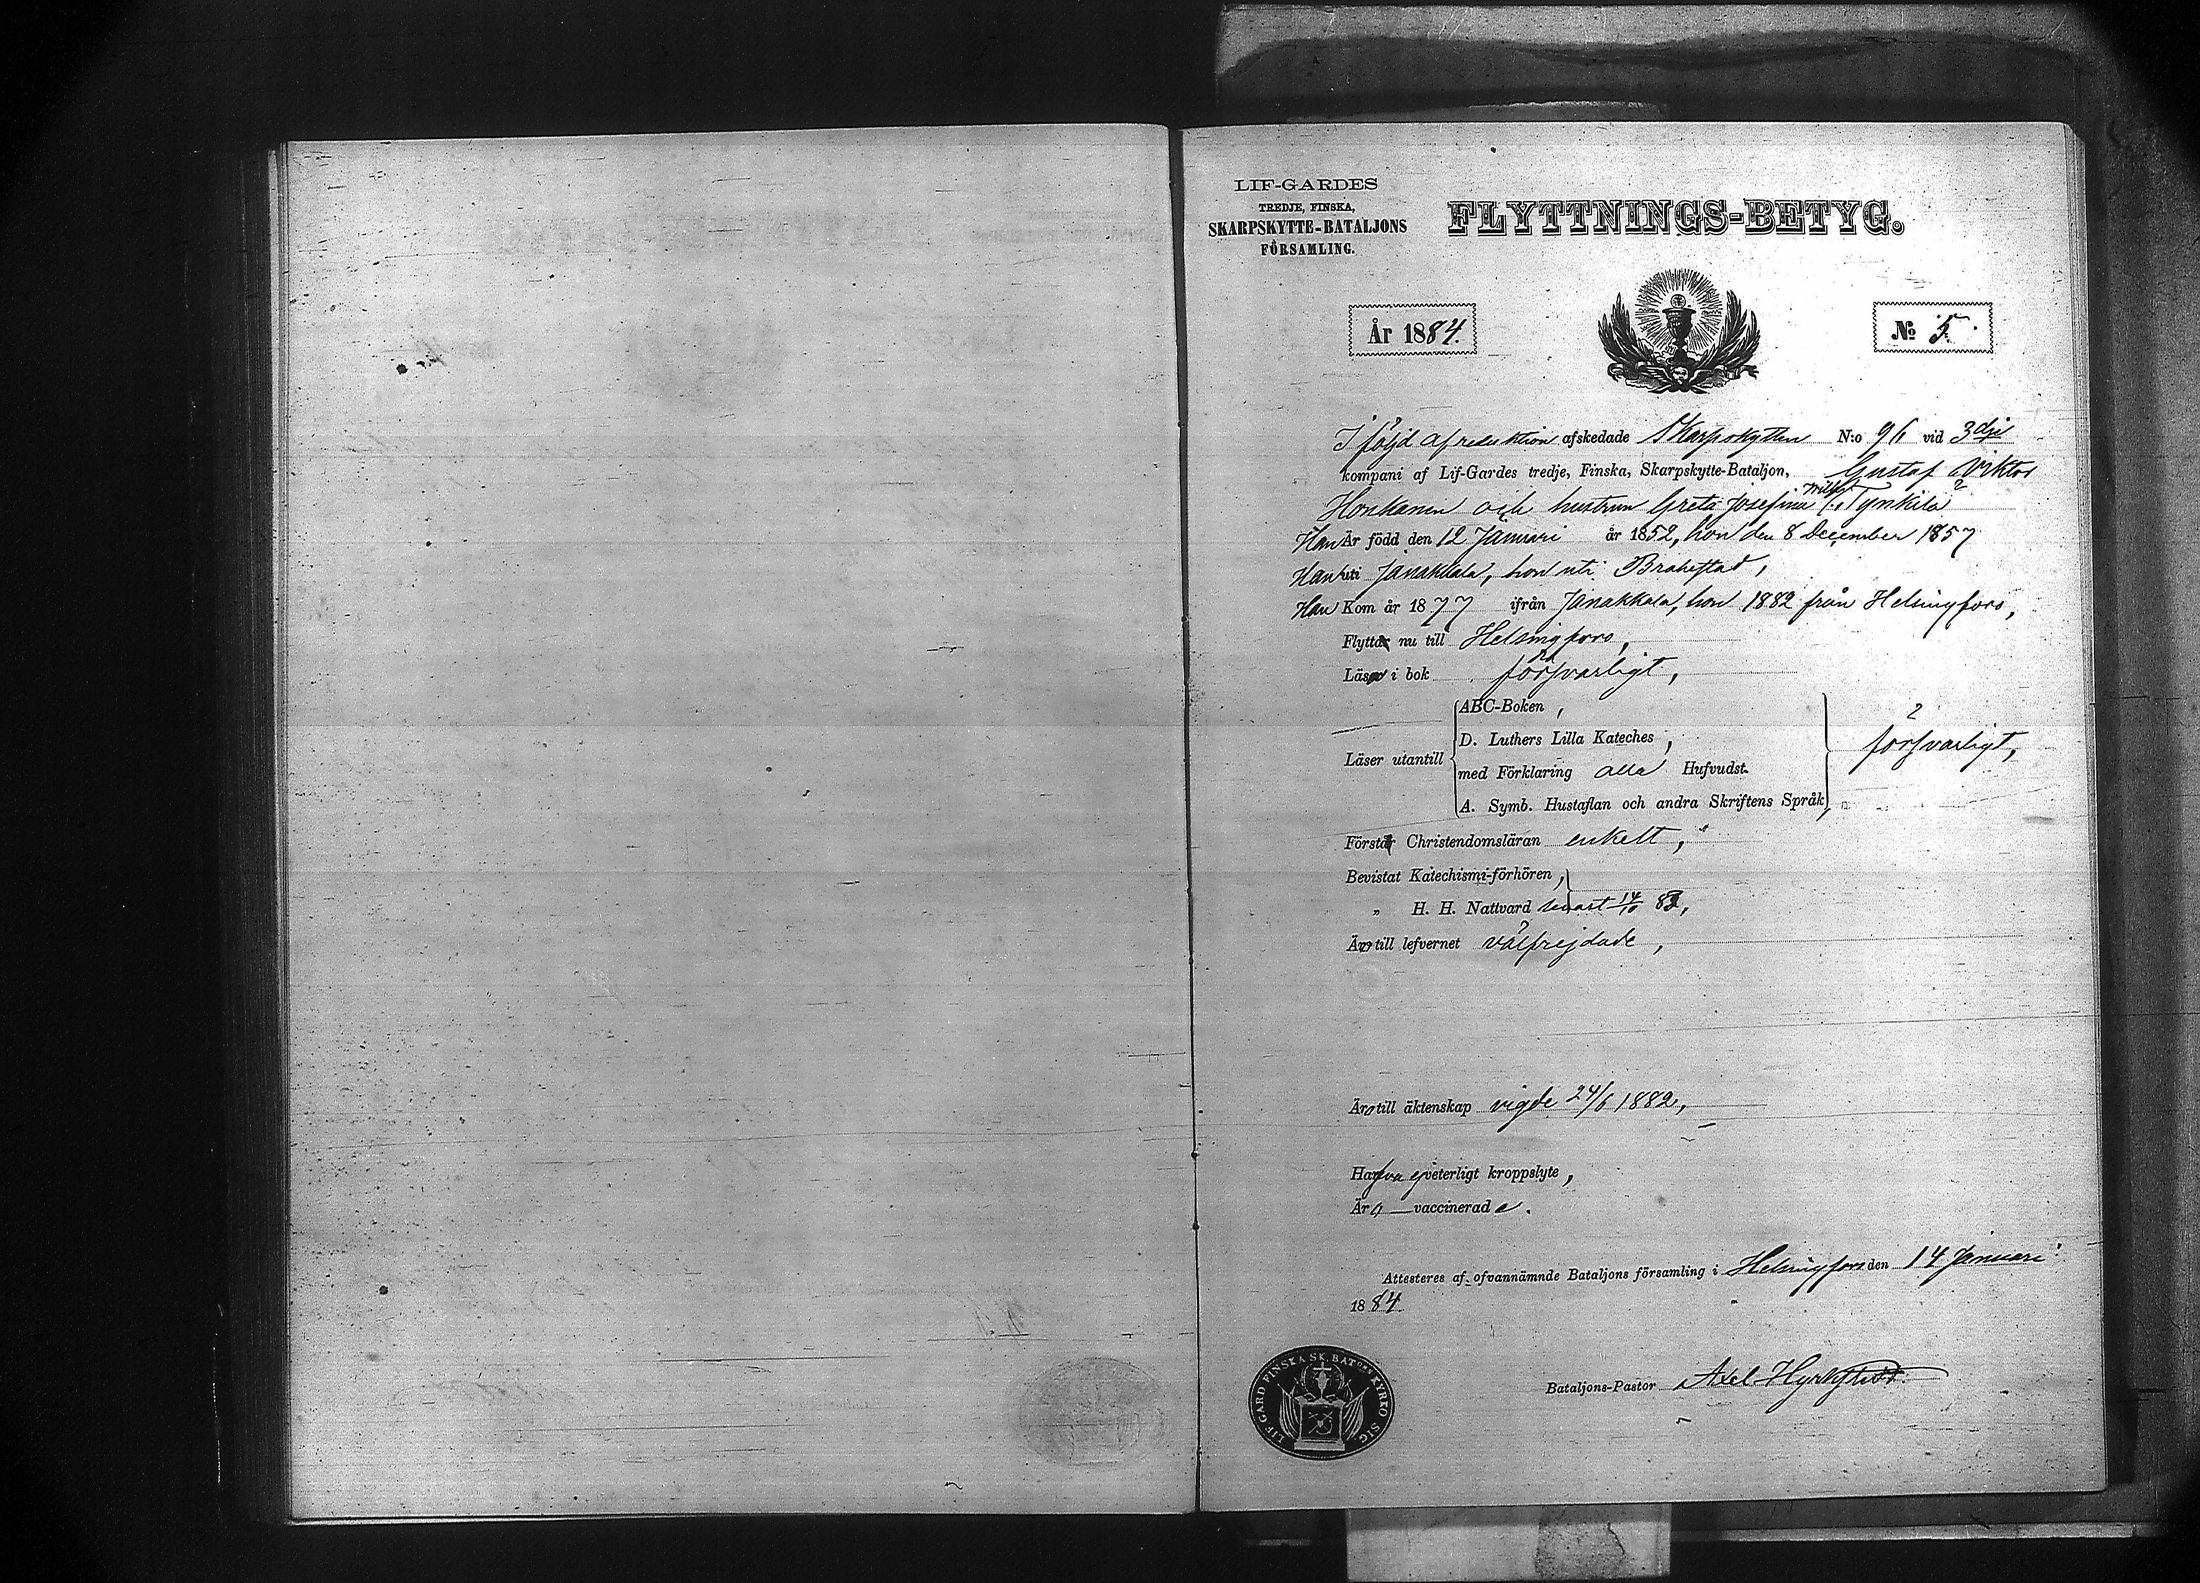 LIF-GARDES
TREDJE, FINSKA,
SKARPSKYTTE-BATALJONS
FÖRSAMLING.
FLYTTNINGS-BETYG.
År 1884.
No 5.
I följd af reduktion afskedade Skarpskytten N:o 96 vid 3dje
kompani af Lif-Gardes tredje, Finska, Skarpskytte-Bataljon, Gustaf Viktor
Honkanen och hustrun Greta Josefina Tynkilä
Han Är född den 12 Januari år 1852, hon den 8 December 1857
Han uti Janakkala, hon uti Brahestad,
Han Kom år 1877 ifrån Janakkala, hon 1882 från Helsingfors,
Flytta nu till Helsingfors,
Läsa i bok försvarligt,
ABC-Boken,
D. Luthers Lilla Kateches,
Läser utantill
med Förklaring alla Hufvudst.
försvarligt,
A. Symb. Hustaflan och andra Skriftens Språk,
Förstå Christendomsläran enkelt,
Bevistat Katechismi-förhören,
„ H. H. Nattvard senast 14/10 83,
Äro till lefvernet välfrejdade,
Äro till äktenskap vigde 24/6 1882,
Hafva ej veterligt kroppslyte,
Äro vaccinerade.
Attesteres af ofvannämnde Bataljons församling i Helsingfors den 14 Januari
1884
Bataljons-Pastor Axel
LIF-GARD FINSKA SK. BATONS KYRKO SIG